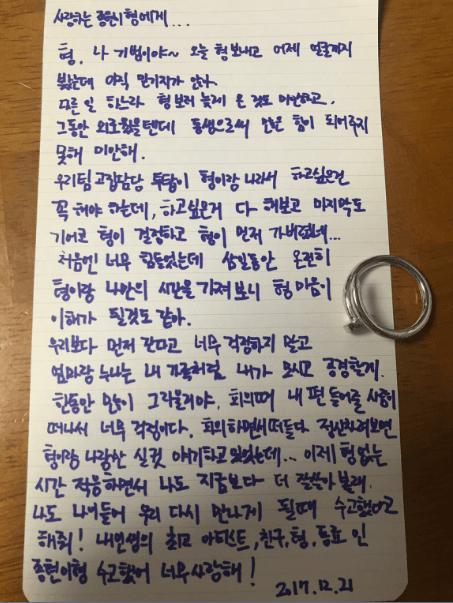 사랑하는 종현이형에게...
형. 나 기범이야~ 오늘 형 보내고 어제 얼굴까지
봤는데 아직 믿기지가 않아.
다른 일 하느라 형 보러 늦게 온 것도 미안하고.
그동안 외로웠을텐데 동생으로써 힘이 되어주지
못해 미안해.
우리팀 고집담당 투탑이 형이랑 나라서 하고싶은건
꼭 해야 하는데, 하고싶은거 다 해보고 마지막도
기어코 형이 결정하고 형이 먼저 가버렸네...
처음엔 너무 힘들었는데 삼일동안 온전히
형이랑 나만의 시간을 가져 보니 형 마음이
이해가 될것도 같아.
우리보다 먼저 간다고 너무 걱정하지 말고
엄마랑 누나는 내 가족처럼 내가 모시고 공경할게.
한동안 많이 그리울거야. 회의때 내 편 들어줄 사람이
떠나서 너무 걱정이다. 회의하면서 떠들다 정신차려보면
형이랑 나랑만 실컷 얘기하고 있었는데... 이제 형 없는
시간 적응하면서 나도 지금보다 더 잘살아 볼래.
나도 나이들어 우리 다시 만나게 될때 수고했다고
해줘! 내인생의 최고 아티스트, 친구, 형, 동료 인
종현이형 수고했어 너무 사랑해!
2017.12.21